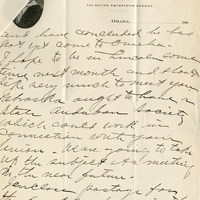 OMAHA,
and have concluded he has
not yet come to Omaha.
I hope to be in Lincoln some
time next month and should
like very much to meet you.
Nebraska ought to have a
State Audubon Society
which could work in
connection with your
Union. We are going to take
up the subject at a meeting
in the near future.
I enclose postage for